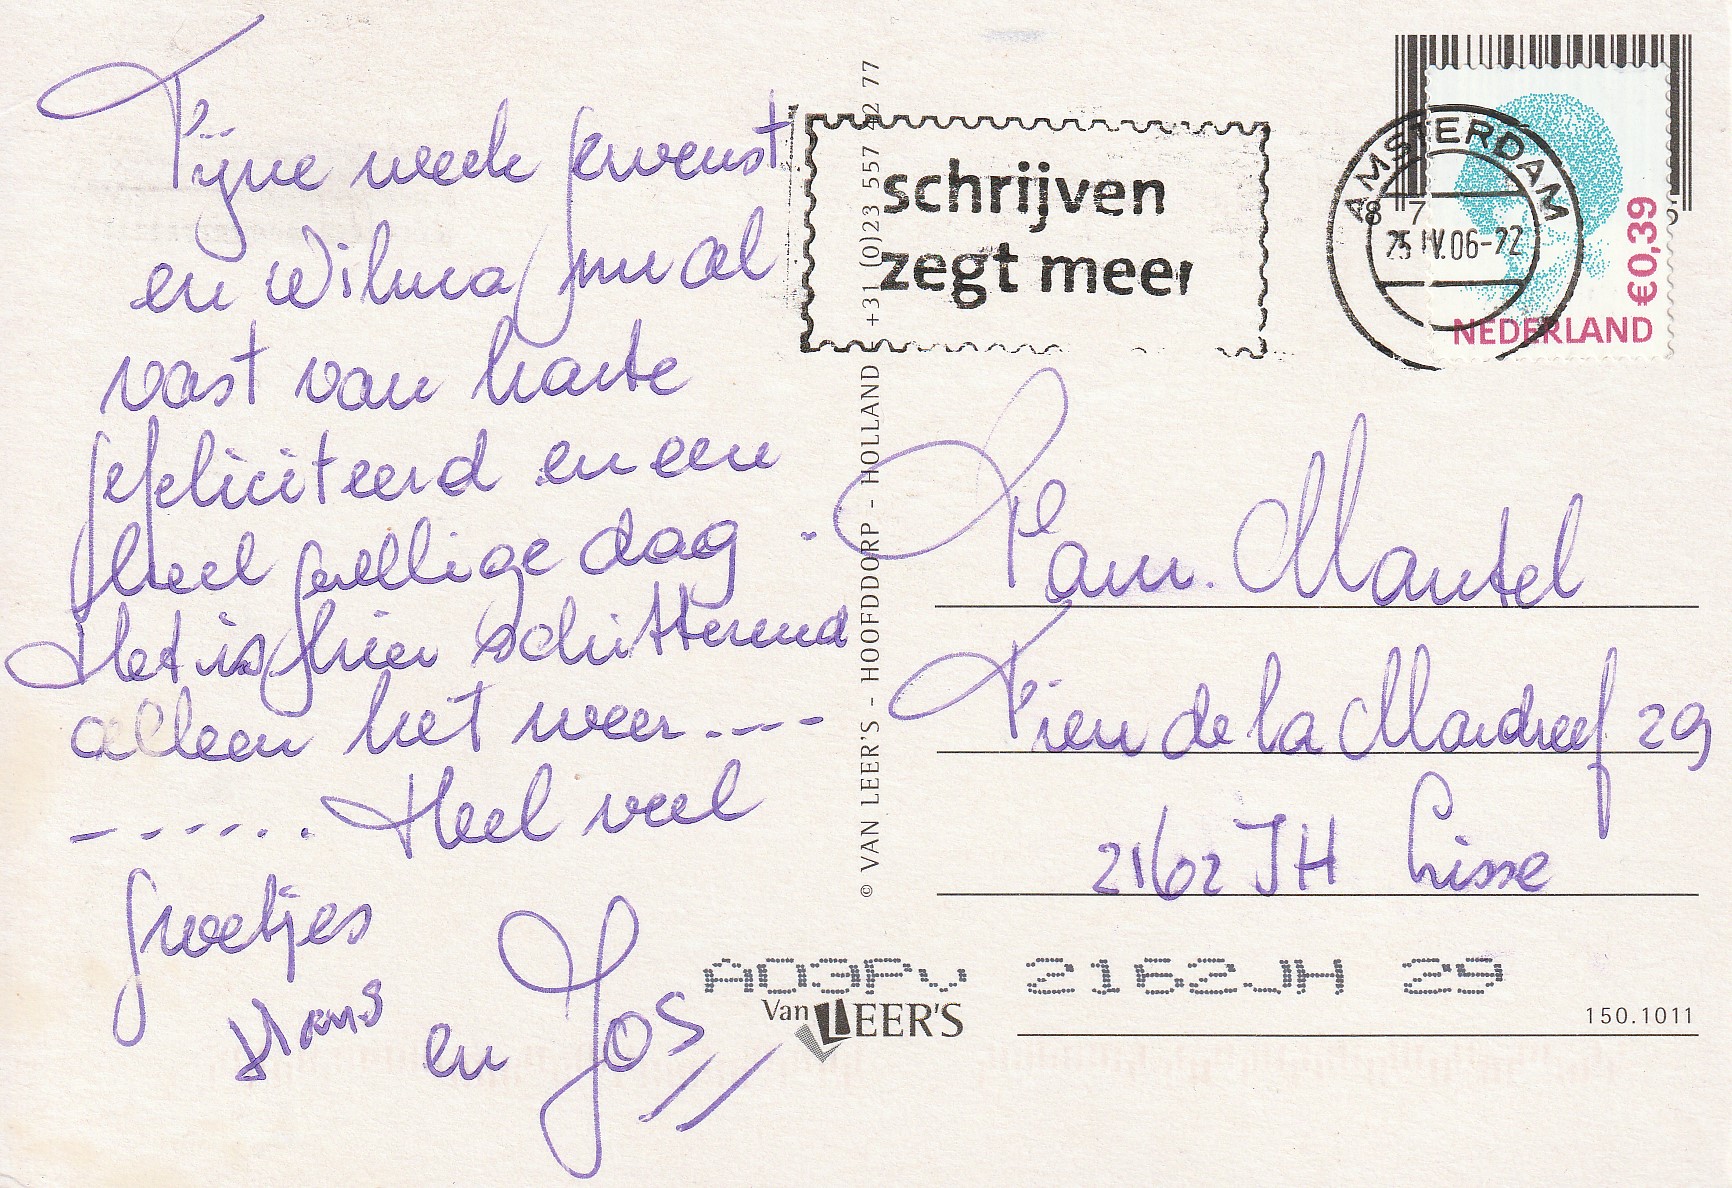 Fijne week gewenst
en Wilma nu al
vast van harte
gefeliciteerd en een
heel gezellige dag.
Het is hier schitterend
alleen het weer ---
------ Heel veel
groetjes
Hans
en Jos
© VAN LEER'S - HOOFDDORP - HOLLAND +31 (0)23 557 42 77
schrijven
zegt meer
AMSTERDAM
8 7
25 IV.06-22
€0,39
NEDERLAND
Fam. Mantel
Frien de la Mardreef 29
2162 JH Lisse
A03PV 2162JH 29
Van LEER'S
150.1011